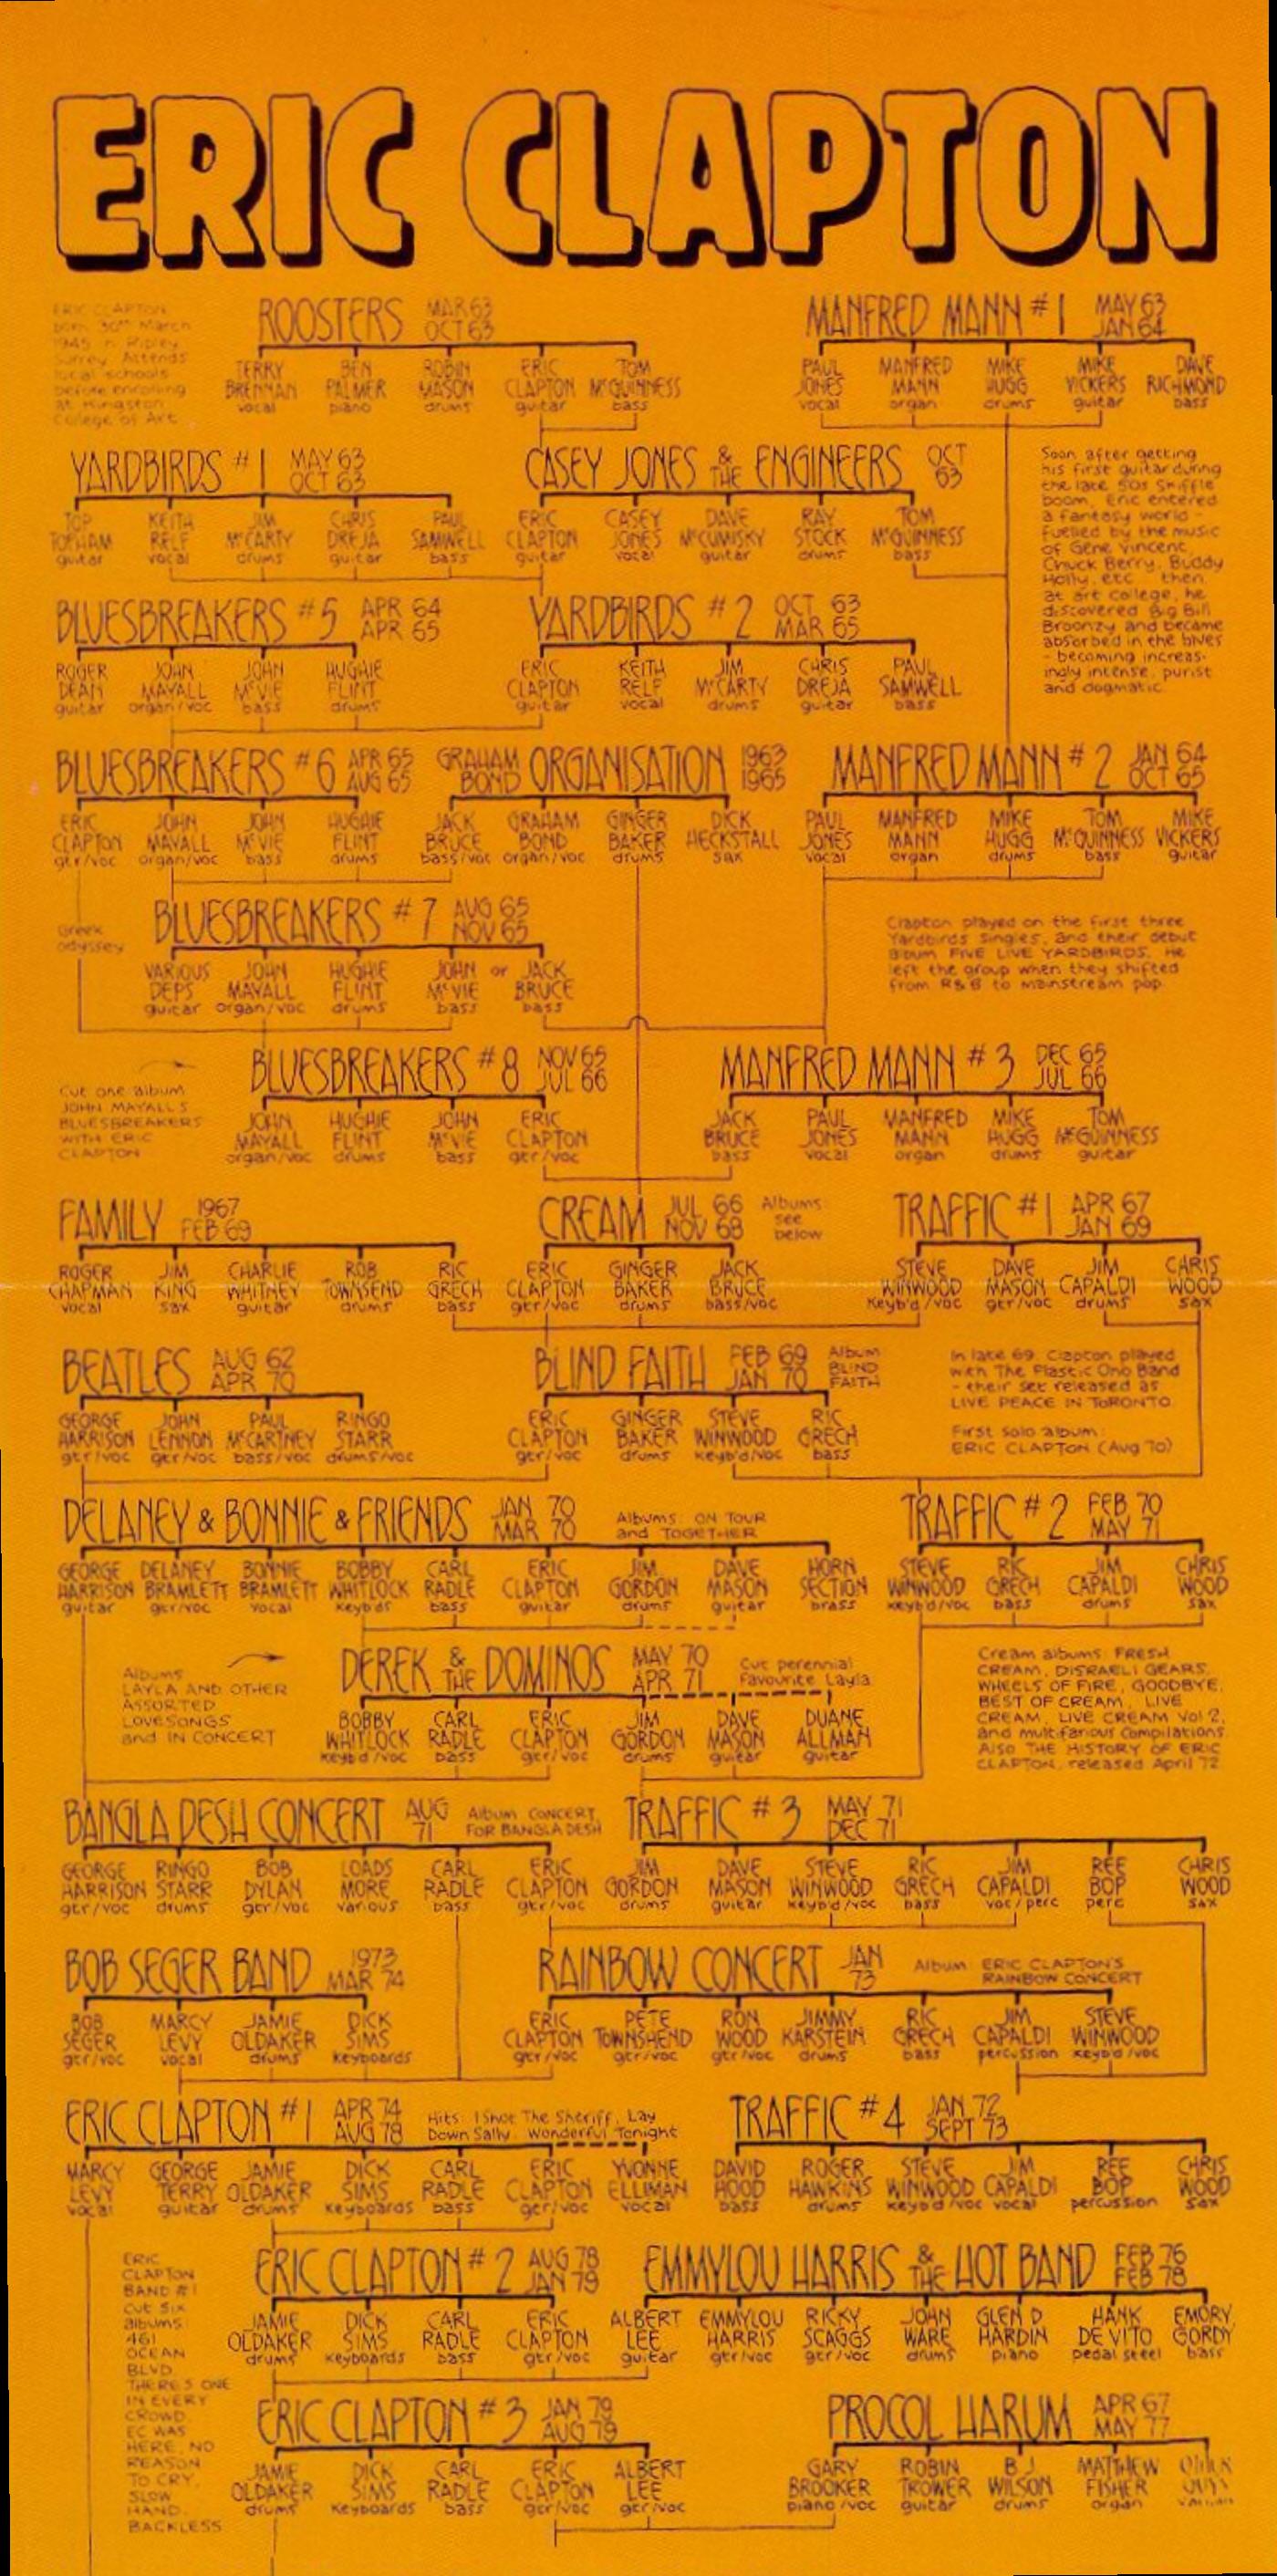 ERIC CLAPTON
ERIC CLAPTON
born 30th March
1945 in Ripley
Surrey. Attends
local schools
before enrolling
at Kingston
College of Art
ROOSTERS MAR 63 OCT 63
TERRY BRENNAN vocal
BEN PALMER piano
ROBIN MASON drums
ERIC CLAPTON guitar
TOM McGUINNESS bass
MANFRED MANN #1 MAY 63 JAN 64
PAUL JONES vocal
MANFRED MANN organ
MIKE HUGG drums
MIKE VICKERS guitar
DAVE RICHMOND bass
YARDBIRDS #1 MAY 63 OCT 63
TOP TOPHAM guitar
KEITH RELF vocal
JIM McCARTY drums
CHRIS DREJA guitar
PAUL SAMWELL bass
CASEY JONES & THE ENGINEERS OCT 63
ERIC CLAPTON guitar
CASEY JONES vocal
DAVE McCUMISKY guitar
RAY STOCK drums
TOM McGUINNESS bass
Soon after getting
his first guitar during
the late 50s Skiffle
boom, Eric entered
a fantasy world -
fuelled by the music
of Gene Vincent,
Chuck Berry, Buddy
Holly, etc. then,
at art college, he
discovered Big Bill
Broonzy and became
absorbed in the blues
- becoming increas-
ingly intense, purist
and dogmatic.
BLUESBREAKERS #5 APR 64 APR 65
ROGER DEAN guitar
JOHN MAYALL organ/voc
JOHN McVIE bass
HUGHIE FLINT drums
YARDBIRDS #2 OCT 63 MAR 65
ERIC CLAPTON guitar
KEITH RELF vocal
JIM McCARTY drums
CHRIS DREJA guitar
PAUL SAMWELL bass
BLUESBREAKERS #6 APR 65 AUG 65
ERIC CLAPTON gtr/voc
JOHN MAYALL organ/voc
JOHN McVIE bass
HUGHIE FLINT drums
GRAHAM BOND ORGANISATION 1963 1965
JACK BRUCE bass/voc
GRAHAM BOND organ/voc
GINGER BAKER drums
DICK HECKSTALL sax
MANFRED MANN #2 JAN 64 OCT 65
PAUL JONES vocal
MANFRED MANN organ
MIKE HUGG drums
TOM McGUINNESS bass
MIKE VICKERS guitar
Greek
odyssey
BLUESBREAKERS #7 AUG 65 NOV 65
VARIOUS DEPS guitar
JOHN MAYALL organ/voc
HUGHIE FLINT drums
JOHN McVIE bass
or
JACK BRUCE bass
Clapton played on the first three
Yardbirds singles, and their debut
album FIVE LIVE YARDBIRDS. He
left the group when they shifted
from R&B to mainstream pop.
Cut one album
JOHN MAYALL'S
BLUESBREAKERS
WITH ERIC
CLAPTON
BLUESBREAKERS #8 NOV 65 JUL 66
JOHN MAYALL organ/voc
HUGHIE FLINT drums
JOHN McVIE bass
ERIC CLAPTON gtr/voc
MANFRED MANN #3 DEC 65 JUL 66
JACK BRUCE bass
PAUL JONES vocal
MANFRED MANN organ
MIKE HUGG drums
TOM McGUINNESS guitar
FAMILY 1967 FEB 69
ROGER CHAPMAN vocal
JIM KING sax
CHARLIE WHITNEY guitar
ROB TOWNSEND drums
RIC GRECH bass
CREAM JUL 66 NOV 68
Albums:
see
below
ERIC CLAPTON gtr/voc
GINGER BAKER drums
JACK BRUCE bass/voc
TRAFFIC #1 APR 67 JAN 69
STEVE WINWOOD keyb'd/voc
DAVE MASON gtr/voc
JIM CAPALDI drums
CHRIS WOOD sax
BEATLES AUG 62 APR 70
GEORGE HARRISON gtr/voc
JOHN LENNON gtr/voc
PAUL McCARTNEY bass/voc
RINGO STARR drums/voc
BLIND FAITH FEB 69 JAN 70
Album:
BLIND
FAITH
ERIC CLAPTON gtr/voc
GINGER BAKER drums
STEVE WINWOOD keyb'd/voc
RIC GRECH bass
In late 69, Clapton played
with The Plastic Ono Band
- their set released as
LIVE PEACE IN TORONTO.
First solo album:
ERIC CLAPTON (Aug 70)
DELANEY & BONNIE & FRIENDS JAN 70 MAR 70
Albums: ON TOUR
and TOGETHER
GEORGE HARRISON guitar
DELANEY BRAMLETT gtr/voc
BONNIE BRAMLETT vocal
BOBBY WHITLOCK keyb'ds
CARL RADLE bass
ERIC CLAPTON guitar
JIM GORDON drums
DAVE MASON guitar
HORN SECTION brass
TRAFFIC #2 FEB 70 MAY 71
STEVE WINWOOD keyb'd/voc
RIC GRECH bass
JIM CAPALDI drums
CHRIS WOOD sax
Albums
LAYLA AND OTHER
ASSORTED
LOVESONGS
and IN CONCERT
DEREK & THE DOMINOS MAY 70 APR 71
Cut perennial
favourite Layla
BOBBY WHITLOCK keyb'd/voc
CARL RADLE bass
ERIC CLAPTON gtr/voc
JIM GORDON drums
DAVE MASON guitar
DUANE ALLMAN guitar
Cream albums: FRESH
CREAM, DISRAELI GEARS,
WHEELS OF FIRE, GOODBYE,
BEST OF CREAM, LIVE
CREAM, LIVE CREAM Vol 2,
and multifarious compilations.
Also THE HISTORY OF ERIC
CLAPTON, released April 72
BANGLA DESH CONCERT AUG 71
Album CONCERT
FOR BANGLA DESH
GEORGE HARRISON gtr/voc
RINGO STARR drums
BOB DYLAN gtr/voc
LOADS MORE various
CARL RADLE bass
ERIC CLAPTON gtr/voc
TRAFFIC #3 MAY 71 DEC 71
JIM GORDON drums
DAVE MASON guitar
STEVE WINWOOD keyb'd/voc
RIC GRECH bass
JIM CAPALDI voc/perc
REE BOP perc
CHRIS WOOD sax
BOB SEGER BAND 1973 MAR 74
BOB SEGER gtr/voc
MARCY LEVY vocal
JAMIE OLDAKER drums
DICK SIMS keyboards
RAINBOW CONCERT JAN 73
Album: ERIC CLAPTON'S
RAINBOW CONCERT
ERIC CLAPTON gtr/voc
PETE TOWNSHEND gtr/voc
RON WOOD gtr/voc
JIMMY KARSTEIN drums
RIC GRECH bass
JIM CAPALDI percussion
STEVE WINWOOD keyb'd/voc
ERIC CLAPTON #1 APR 74 AUG 78
Hits: I Shot The Sheriff, Lay
Down Sally, Wonderful Tonight
MARCY LEVY vocal
GEORGE TERRY guitar
JAMIE OLDAKER drums
DICK SIMS keyboards
CARL RADLE bass
ERIC CLAPTON gtr/voc
YVONNE ELLIMAN vocal
TRAFFIC #4 JAN 72 SEPT 73
DAVID HOOD bass
ROGER HAWKINS drums
STEVE WINWOOD keyb'd/voc
JIM CAPALDI vocal
REE BOP percussion
CHRIS WOOD sax
ERIC
CLAPTON
BAND #1
cut six
albums:
461
OCEAN
BLVD
THERE'S ONE
IN EVERY
CROWD
EC WAS
HERE, NO
REASON
TO CRY,
SLOW
HAND,
BACKLESS
ERIC CLAPTON #2 AUG 78 JAN 79
JAMIE OLDAKER drums
DICK SIMS keyboards
CARL RADLE bass
ERIC CLAPTON gtr/voc
EMMYLOU HARRIS & THE HOT BAND FEB 76 FEB 78
ALBERT LEE guitar
EMMYLOU HARRIS gtr/voc
RICKY SCAGGS gtr/voc
JOHN WARE drums
GLEN D HARDIN piano
HANK DE VITO pedal steel
EMORY GORDY bass
ERIC CLAPTON #3 JAN 79 AUG 79
JAMIE OLDAKER drums
DICK SIMS keyboards
CARL RADLE bass
ERIC CLAPTON gtr/voc
ALBERT LEE gtr/voc
PROCOL HARUM APR 67 MAY 77
GARY BROOKER piano/voc
ROBIN TROWER guitar
B J WILSON drums
MATTHEW FISHER organ